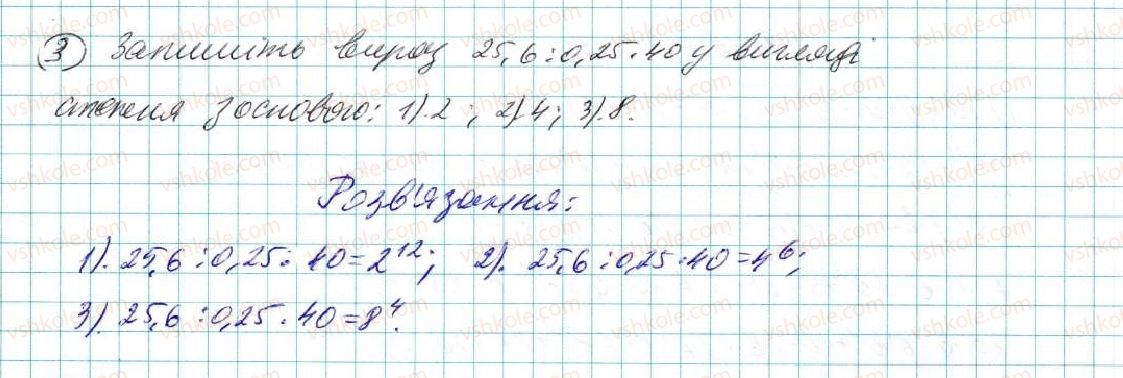 3 Запишіть вираз 25,6 : 0,25 · 40 у вигляді
степеня з основою: 1). 2 ; 2) 4 ; 3). 8.
Розв'язання:
1). 25,6 : 0,25 · 40 = 2¹²; 2). 25,6 : 0,25 · 40 = 4⁶;
3). 25,6 : 0,25 · 40 = 8⁴.